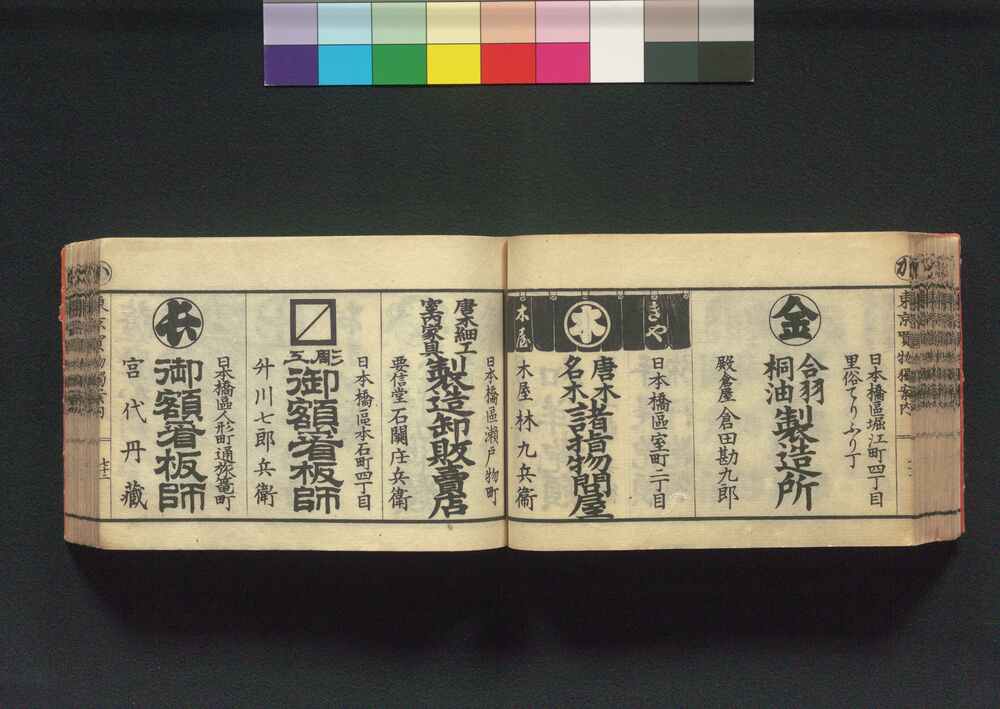 か
東京買物獨案内
日本橋區堀江町四丁目
里俗てりふり丁
金
合羽
桐油
製造所
殿倉屋 倉田勘九郎
きや
木
木屋
日本橋區室町二丁目
唐木
名木
諸指物問屋
木屋 林九兵衞
日本橋區瀬戸物町
唐木細工
室内家具
製造卸販賣店
要信堂 石關庄兵衞
日本橋區本石町四丁目
彫工
御額看板師
升川七郎兵衞
日本橋區人形町通旅篭町
兵
御額看板師
宮代丹藏
か
東京買物獨案内